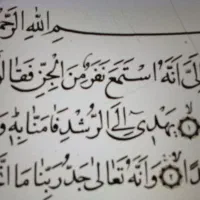 بِسْمِ اللهِ الرَّحْمٰ
اَنَّهُ اسْتَمَعَ نَفَرٌ مِّنَ الْجِنِّ فَقَالُو
يَهْدِيْٓ اِلَى الرُّشْدِ فَاٰمَنَّا بِهٖ ؕ وَ
وَّاَنَّهٗ تَعٰلٰى جَدُّ رَبِّنَا مَا اتَّ